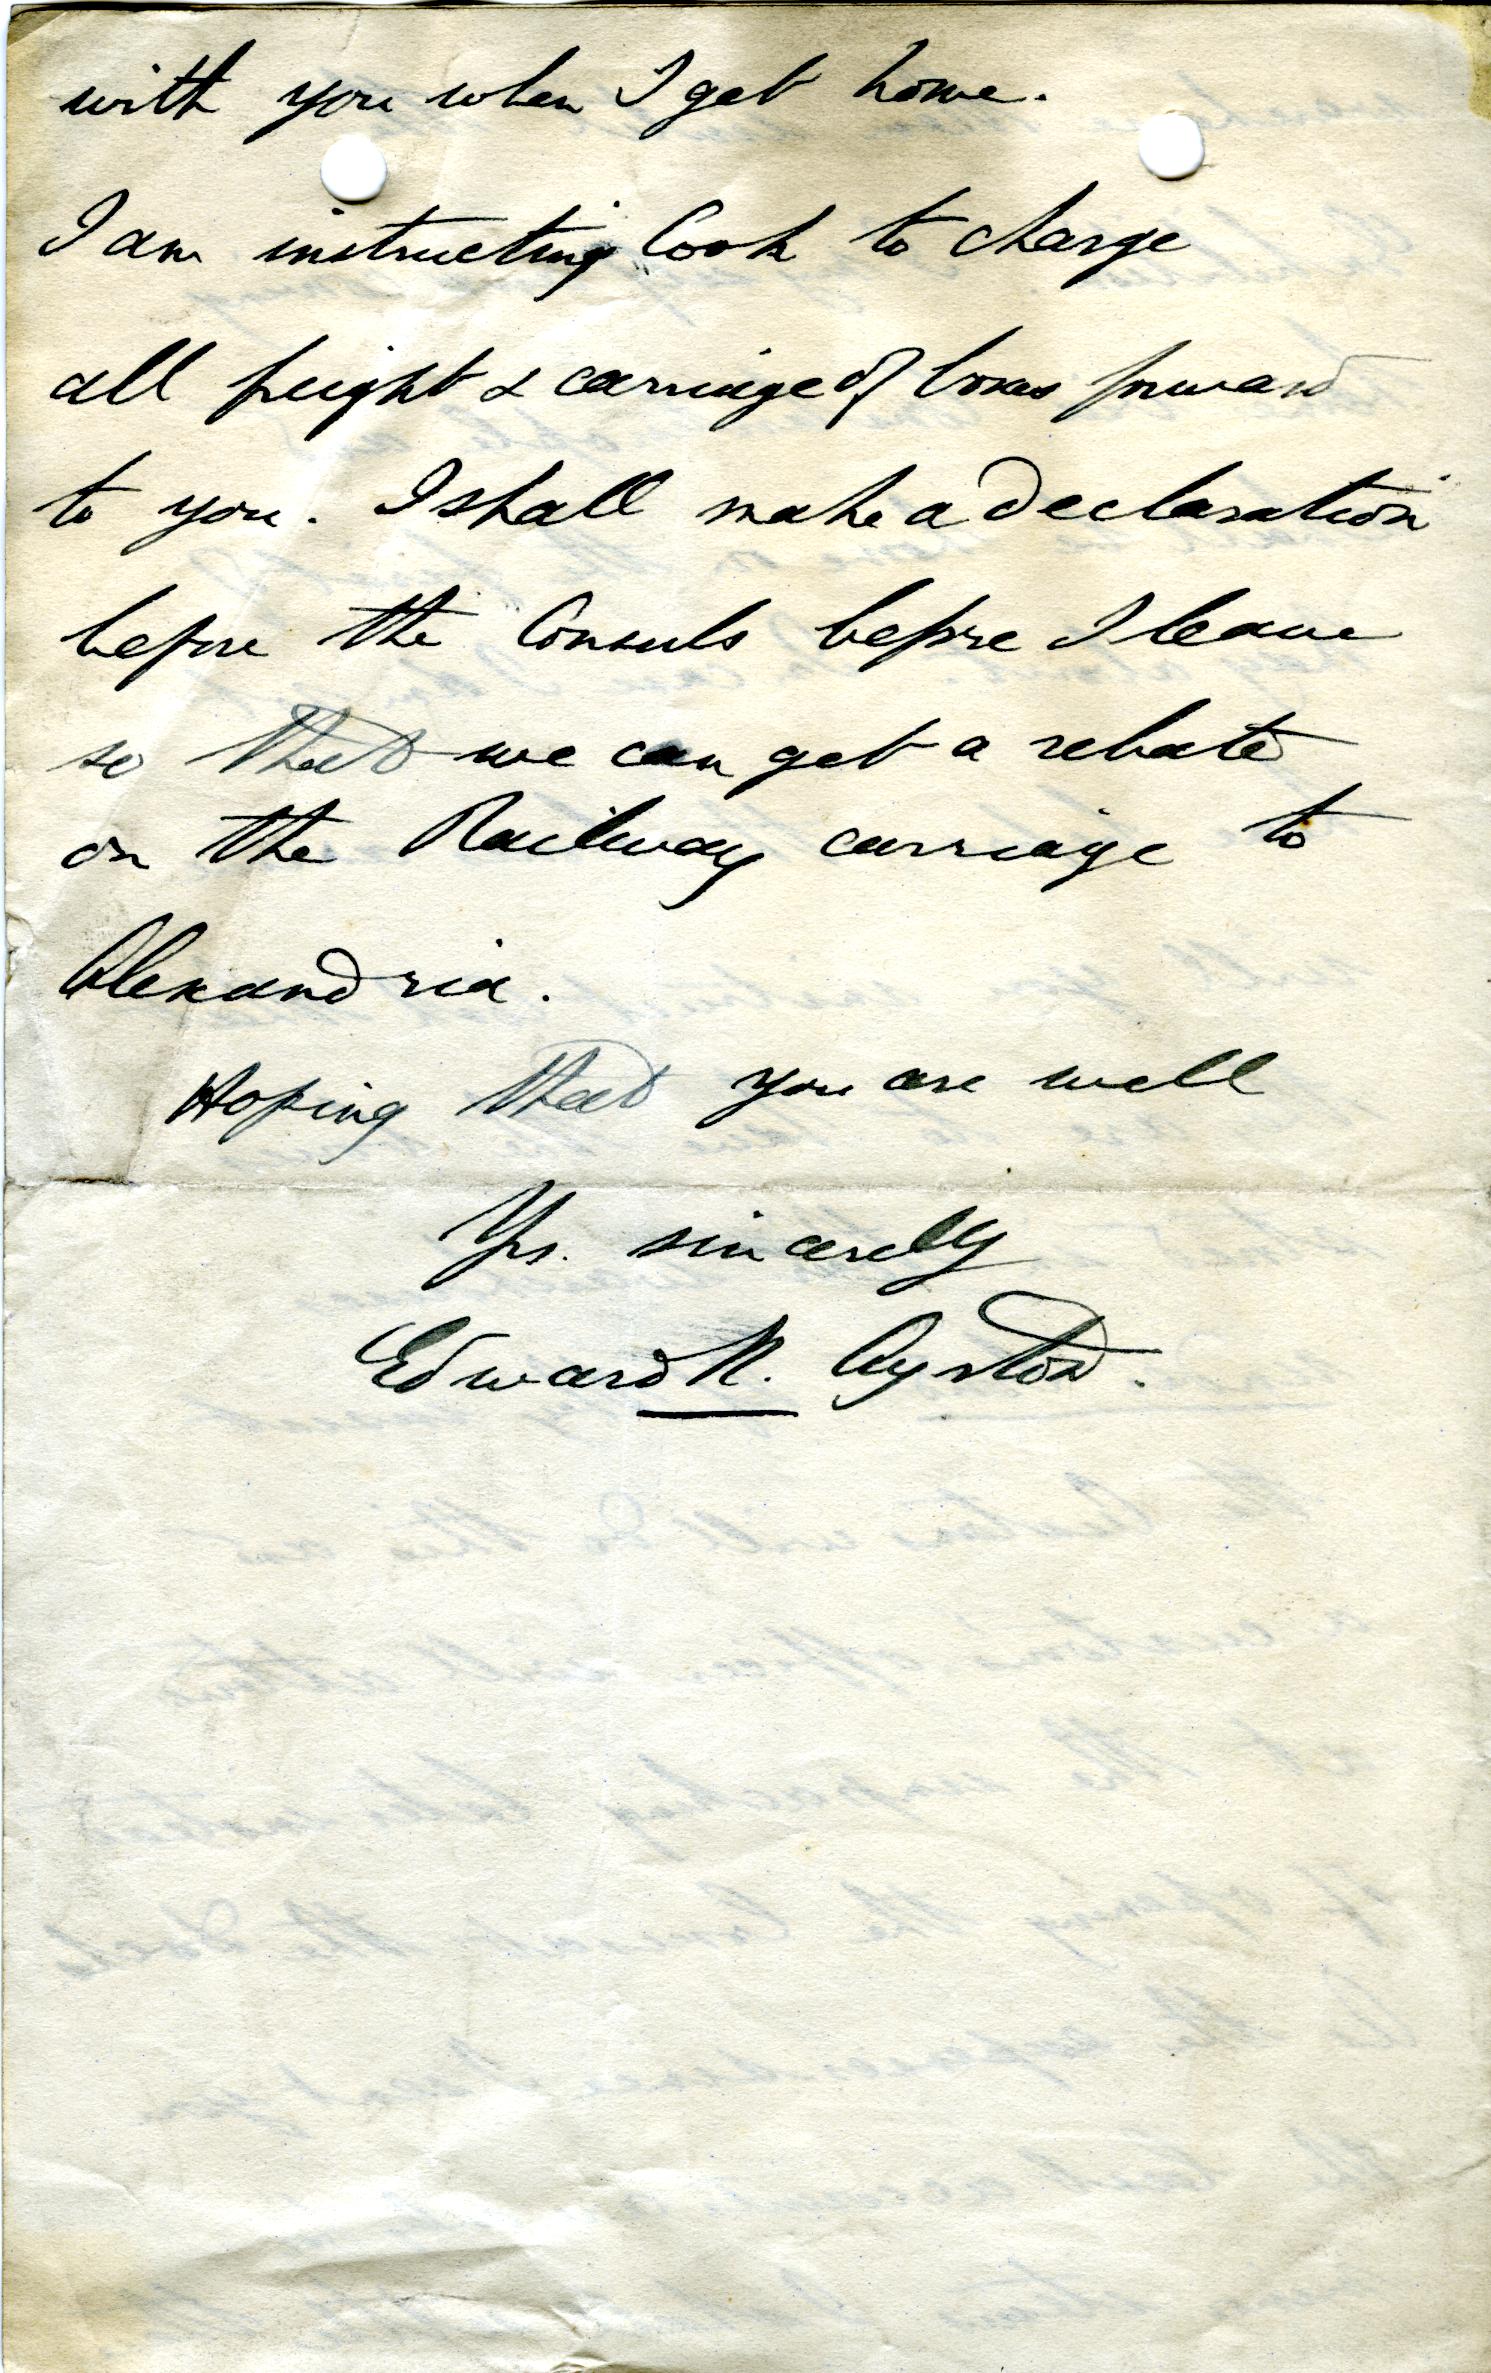 with you when I get home.
I am instructing Cook to charge
all freight & carriage of boxes forward
to you. I shall make a declaration
before the Consuls before I leave
so that we can get a rebate
on the Railway carriage to
Alexandria.
Hoping that you are well
Yrs. sincerely
Edward R. Ayrton.